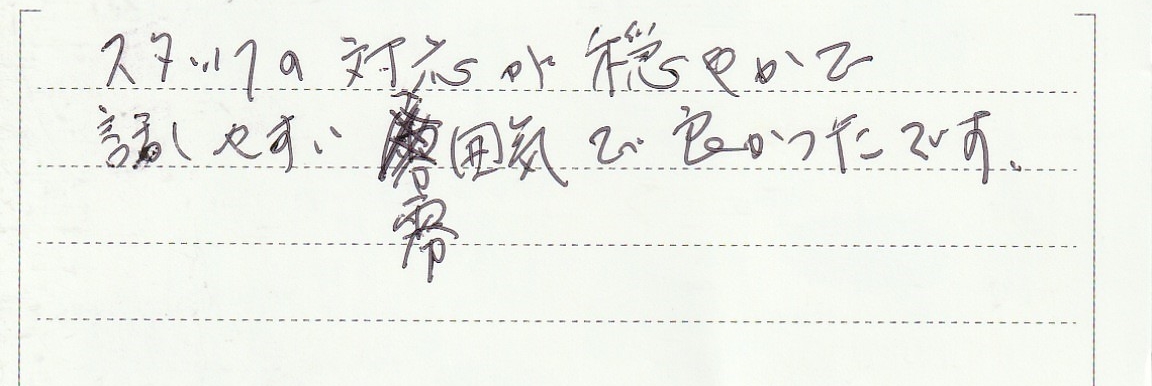 スタッフの対応が穏やかで
話しやすい雰囲気で良かったです。